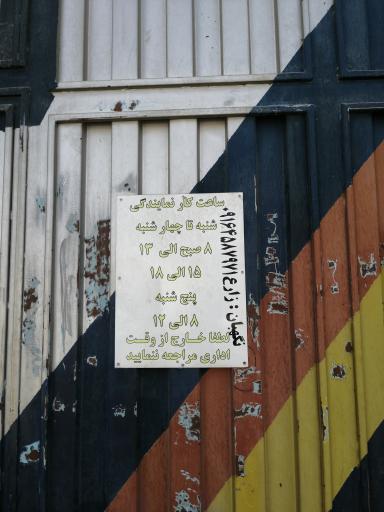 ساعت کار نمایندگی
شنبه تا چهار شنبه
۸ صبح الی ۱۳
۱۵ الی ۱۸
پنج شنبه
۸ الی ۱۲
لطفا خارج از وقت
اداری مراجعه ننمایید
نگهبان : زارع ۰۹۱۶۴۵۸۷۹۷۱